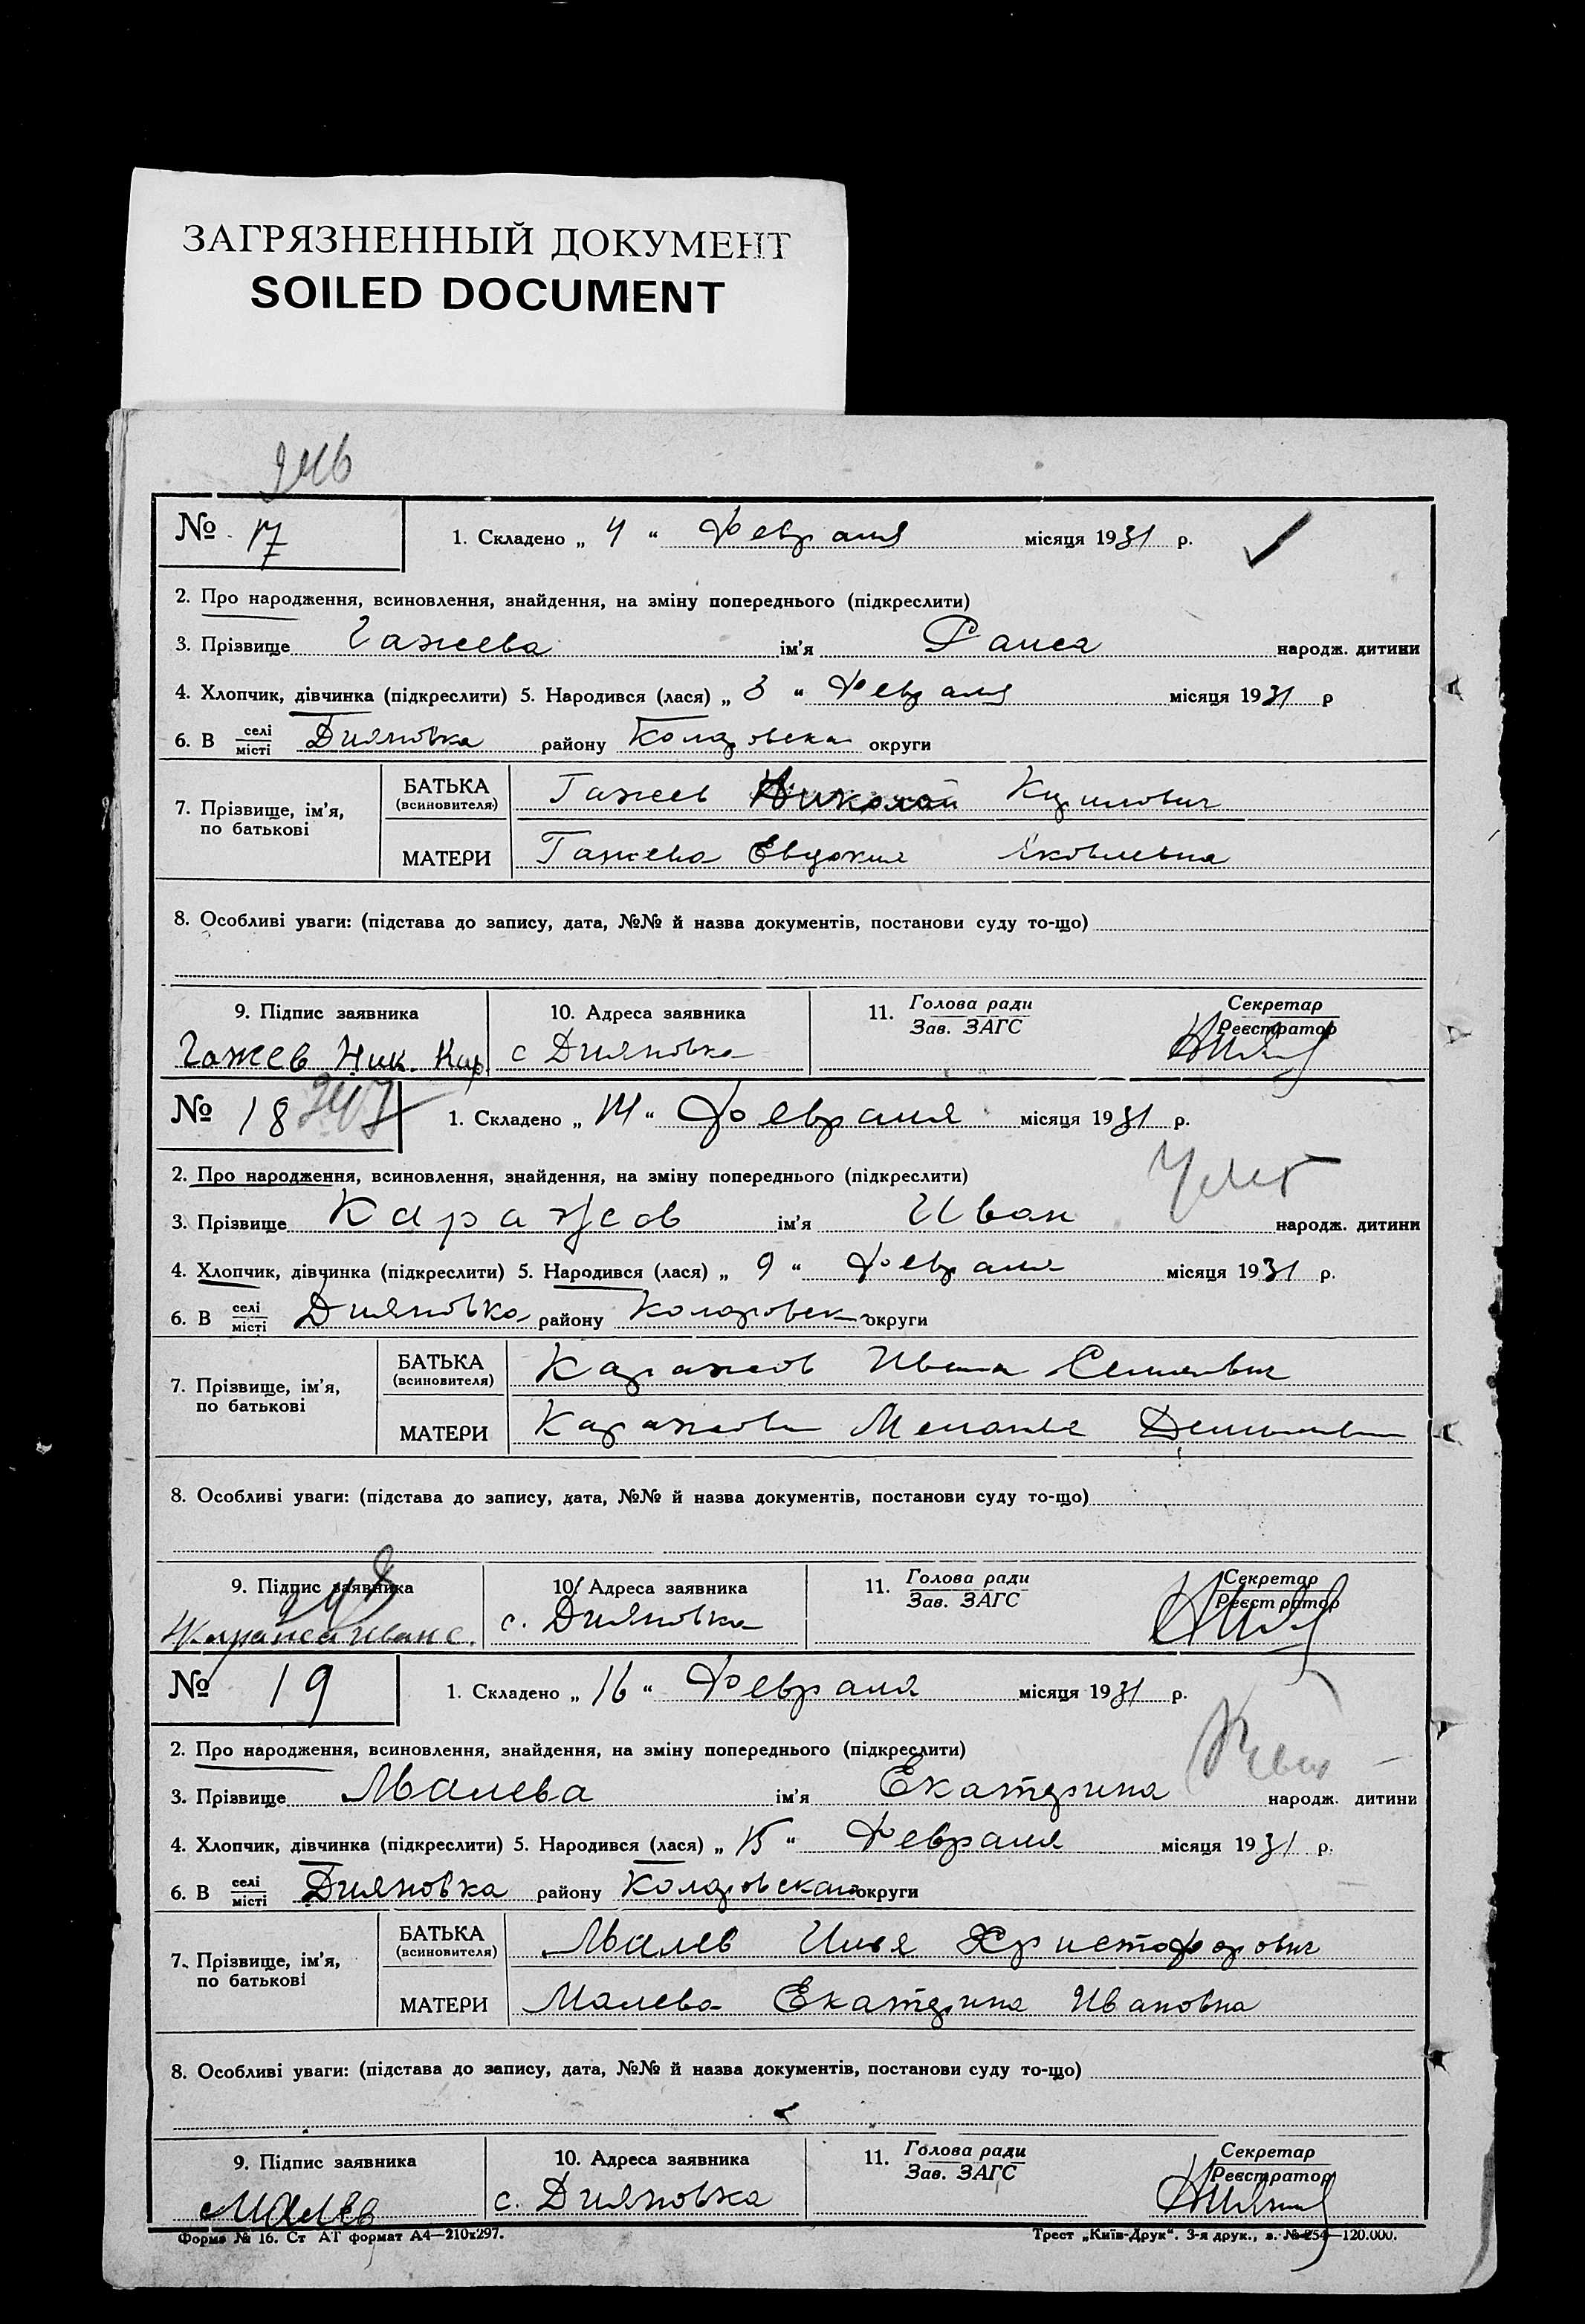 ЗАГРЯЗНЕННЫЙ ДОКУМЕНТ
SOILED DOCUMENT
246
№ 17 1. Складено „ 4 “ Февраля місяця 1931 р.
2. Про народження, всиновлення, знайдення, на зміну попереднього (підкреслити)
3. Прізвище Гажева ім'я Раиса народж. дитини
4. Хлопчик, дівчинка (підкреслити) 5. Народився (лася) „ 3 “ Февраля місяця 1931 р
6. В селі/місті Дияновка району Коларовска округи
7. Прізвище, ім'я, по батькові
БАТЬКА (всиновителя) Гажев Николай Кирилович
МАТЕРИ Гажева Евдокия Яковлевна
8. Особливі уваги: (підстава до запису, дата, №№ й назва документів, постанови суду то-що)
9. Підпис заявника 10. Адреса заявника 11. Голова ради Секретар
Зав. ЗАГС Реєстратор
Гажев Ник. Кир с Дияновка
№ 18 247 1. Складено „ 14 “ Февраля місяця 1931 р.
2. Про народження, всиновлення, знайдення, на зміну попереднього (підкреслити)
3. Прізвище Каражов ім'я Иван народж. дитини
4. Хлопчик, дівчинка (підкреслити) 5. Народився (лася) „ 9 “ Февраля місяця 1931 р.
6. В селі/місті Дияновка району Коларовск округи
7. Прізвище, ім'я, по батькові
БАТЬКА (всиновителя) Каражов Иван Семенович
МАТЕРИ Каражова Мелания
8. Особливі уваги: (підстава до запису, дата, №№ й назва документів, постанови суду то-що)
248
9. Підпис заявника 10. Адреса заявника 11. Голова ради Секретар
Зав. ЗАГС Реєстратор
с. Дияновка
№ 19 1. Складено „ 16 “ Февраля місяця 1931 р.
2. Про народження, всиновлення, знайдення, на зміну попереднього (підкреслити)
3. Прізвище Малева ім'я Екатерина народж. дитини
4. Хлопчик, дівчинка (підкреслити) 5. Народився (лася) „ 15 “ Февраля місяця 1931 р.
6. В селі/місті Дияновка району Коларовская округи
7. Прізвище, ім'я, по батькові
БАТЬКА (всиновителя) Малев Илья Христофорович
МАТЕРИ Малева Екатерина Ивановна
8. Особливі уваги: (підстава до запису, дата, №№ й назва документів, постанови суду то-що)
9. Підпис заявника 10. Адреса заявника 11. Голова ради Секретар
Зав. ЗАГС Реєстратор
Малев с. Дияновка
Форма № 16. Ст АТ формат А4—210х297. Трест „Київ-Друк“. 3-я друк., з. №254—120.000.